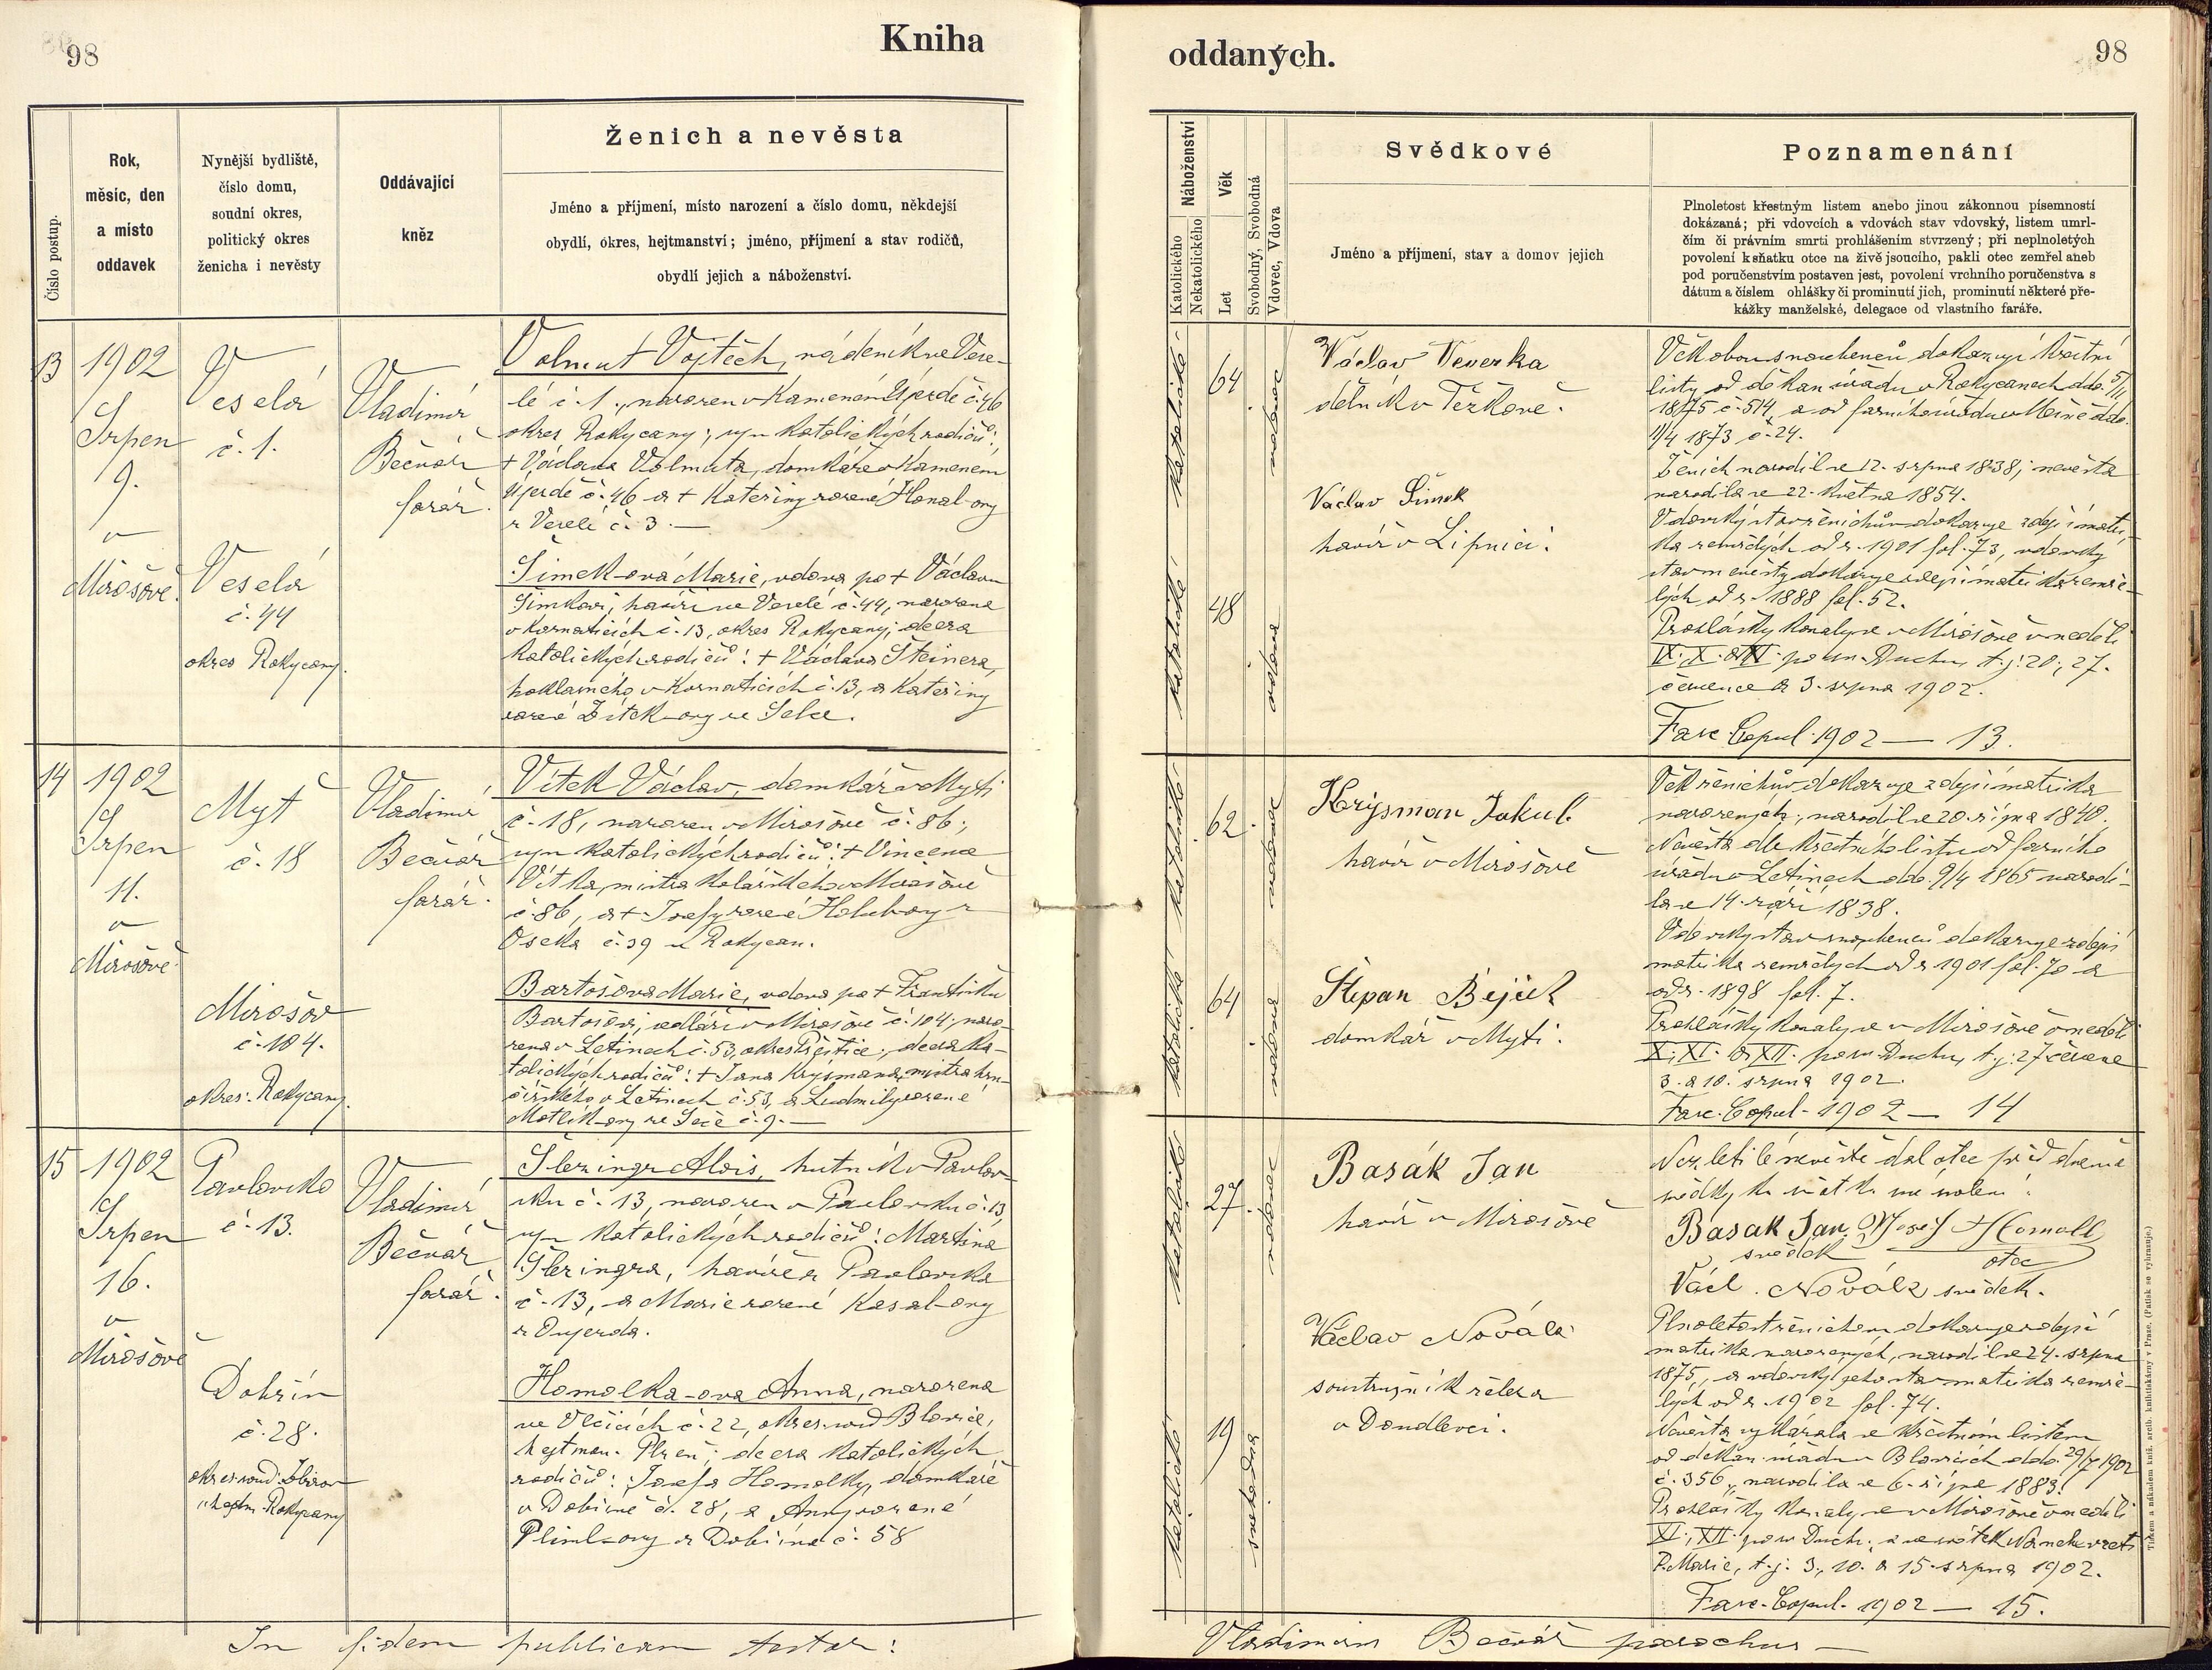 98
Kniha
oddaných.
98
Číslo postup.
Rok,
měsíc, den
a místo
oddavek
Nynější bydliště,
číslo domu,
soudní okres,
politický okres
ženicha i nevěsty
Oddávající
kněz
Ženich a nevěsta
Jméno a příjmení, místo narození a číslo domu, někdejší
obydlí, okres, hejtmanství; jméno, příjmení a stav rodičů,
obydlí jejich a náboženství.
Náboženství
Katolického
Nekatolického
Věk
Let
Svobodný, Svobodná
Vdovec, Vdova
Svědkové
Jméno a příjmení, stav a domov jejich
Poznamenání
Plnoletost křestným listem anebo jinou zákonnou písemností
dokázaná; při vdovcích a vdovách stav vdovský, listem umrl-
čím či právním smrti prohlášením stvrzený; při neplnoletých
povolení k sňatku otce na živě jsoucího, pakli otec zemřel aneb
pod poručenstvím postaven jest, povolení vrchního poručenstva s
dátum a číslem ohlášky či prominutí jich, prominutí některé pře-
kážky manželské, delegace od vlastního faráře.
13
1902
Srpen
9.
v
Mirošově.
Veselá
č. 1.
Veselá
č. 44
okres Rokycany.
Vladimír
Bečvář
farář.
Volmut Vojtěch, nádeník ve Vese-
lé č. 1., narozen v Kameném Újezdě č. 46
okres Rokycany; syn katolických rodičů:
+ Václava Volmuta, domkáře v Kameném
Újezdě č. 46 a + Kateřiny rozené Hanal-ovy
z Veselé č. 3. —
Šimek-ová Marie, vdova po + Václavu
Šimkovi, havíři ve Veselé č. 44, narozena
v Kornaticích č. 13, okres Rokycany; dcera
katolických rodičů: + Václava Šteinera,
v Kornaticích č. 13, a Kateřiny
rozené Žítek-ovy ze
katolické
64
vdovec
katolické
48
vdova
Václav Veverka
dělník v Těškově.
Václav Šimek
havíř v Lipnici.
Věk obou snoubenců dokazují křestní
listy od děkan. úřadu v Rokycanech ddo. 5/11
1875 č. 514, a od farního úřadu v ddo.
11/4 1873 č. 24.
Ženich narodil se 12. srpna 1838; nevěsta
narodila se 22. května 1854.
Vdovský stav ženichův dokazuje zdejší matri-
ka zemřelých od r. 1901 fol. 73, vdovský
stav nevěsty dokazuje zdejší matrika zemře-
lých od r. 1888 fol. 52.
Prohlášky konaly se v Mirošově v neděli
IX., X. a XI. po sv. Duchu, t. j. 20., 27.
července a 3. srpna 1902.
Fasc. Copul. 1902 — 13.
14
1902
Srpen
11.
v
Mirošově.
Myť
č. 18
Mirošov
č. 104.
okres. Rokycany.
Vladimír
Bečvář
farář.
Vítek Václav, domkář v Myti
č. 18, narozen v Mirošově č. 86;
syn katolických rodičů: + Vincence
Vítka, mistra kolářského v Mirošově
č. 86, a + Josefy rozené Holubovy z
Oseka č. 39 u Rokycan.
Bartošová Marie, vdova po + Františku
Bartošovi, sedláři v Mirošově č. 104; naro-
zena v Letinech č. 53, okres Přeštice; dcera ka-
tolických rodičů: + Jana Krysmana, mistra hrn-
čířského v Letinech č. 53, a Ludmily rozené
Motlík-ovy ze Seče č. 9. —
katolické
62
vdovec
katolické
64
vdova
Krysman Jakub
havíř v Mirošově
Štěpan Bejček
domkář v Myti.
Věk ženichův dokazuje zdejší matrika
narozených; narodil se 20. října 1840.
Nevěsta dle křestního listu od farního
úřadu v Letinech ddo. 9/4 1865 narodi-
la se 14. září 1838.
Vdovský stav snoubenců dokazuje zdejší
matrika zemřelých od r. 1901 fol. 70 a
od r. 1898 fol. 7.
Prohlášky konaly se v Mirošově v neděli
X., XI. a XII. po sv. Duchu, t. j. 27 července
3. a 10. srpna 1902.
Fasc. Copul. 1902 — 14
15
1902
Srpen
16.
v
Mirošově
Pavlovsko
č. 13.
Dobřín
č. 28.
okres soud. Zbirov
hejtm. Rokycany
Vladimír
Bečvář
farář.
Alois, hutník v Pavlov-
sku č. 13, narozen v Pavlovsku č. 13,
syn katolických rodičů: Martina
havíře z Pavlovska
č. 13, a Marie rozené Kasal-ovy
z Oujezda.
Homolka-ova Anna, narozena
ve Vlčicích č. 22, okres soud Blovice,
hejtman. Plzeň; dcera katolických
rodičů: Josefa Homolky, domkáře
v Dobříně č. 28, a Anny rozené
z Dobřína č. 58
katolické
27
vdovec
katolické
19
svobodná
Basák Jan
havíř v Mirošově
Václav Novák
soustružník železa
v Doudlevci.
Nezletilé nevěstě dal otec před dvěma
svědky ku sňatku své svolení:
Basak Jan Josef Homolk
svědek otec
Václ. Novák svědek.
Plnoletost ženichovu dokazuje zdejší
matrika narozených, narodil se 24. srpna
1875, a vdovský jeho stav matrika zemře-
lých od r. 1902 fol. 74.
Nevěsta vykázala se křestním listem
od děkan. úřadu v Blovicích ddo. 29/7 1902
č. 356, narodila se 6. října 1883.
Prohlášky konaly se v Mirošově v neděli
XI., XII. po sv. Duchu, a ve svátek Nanebevzetí
P. Marie, t. j. 3., 10. a 15. srpna 1902.
Fasc. Copul. 1902 — 15.
In fidem publicam testor:
Vladimirus Bečvář parochus —
Tiskem a nákladem kníž. arcib. knihtiskárny v Praze. (Patisk se vyhrazuje.)